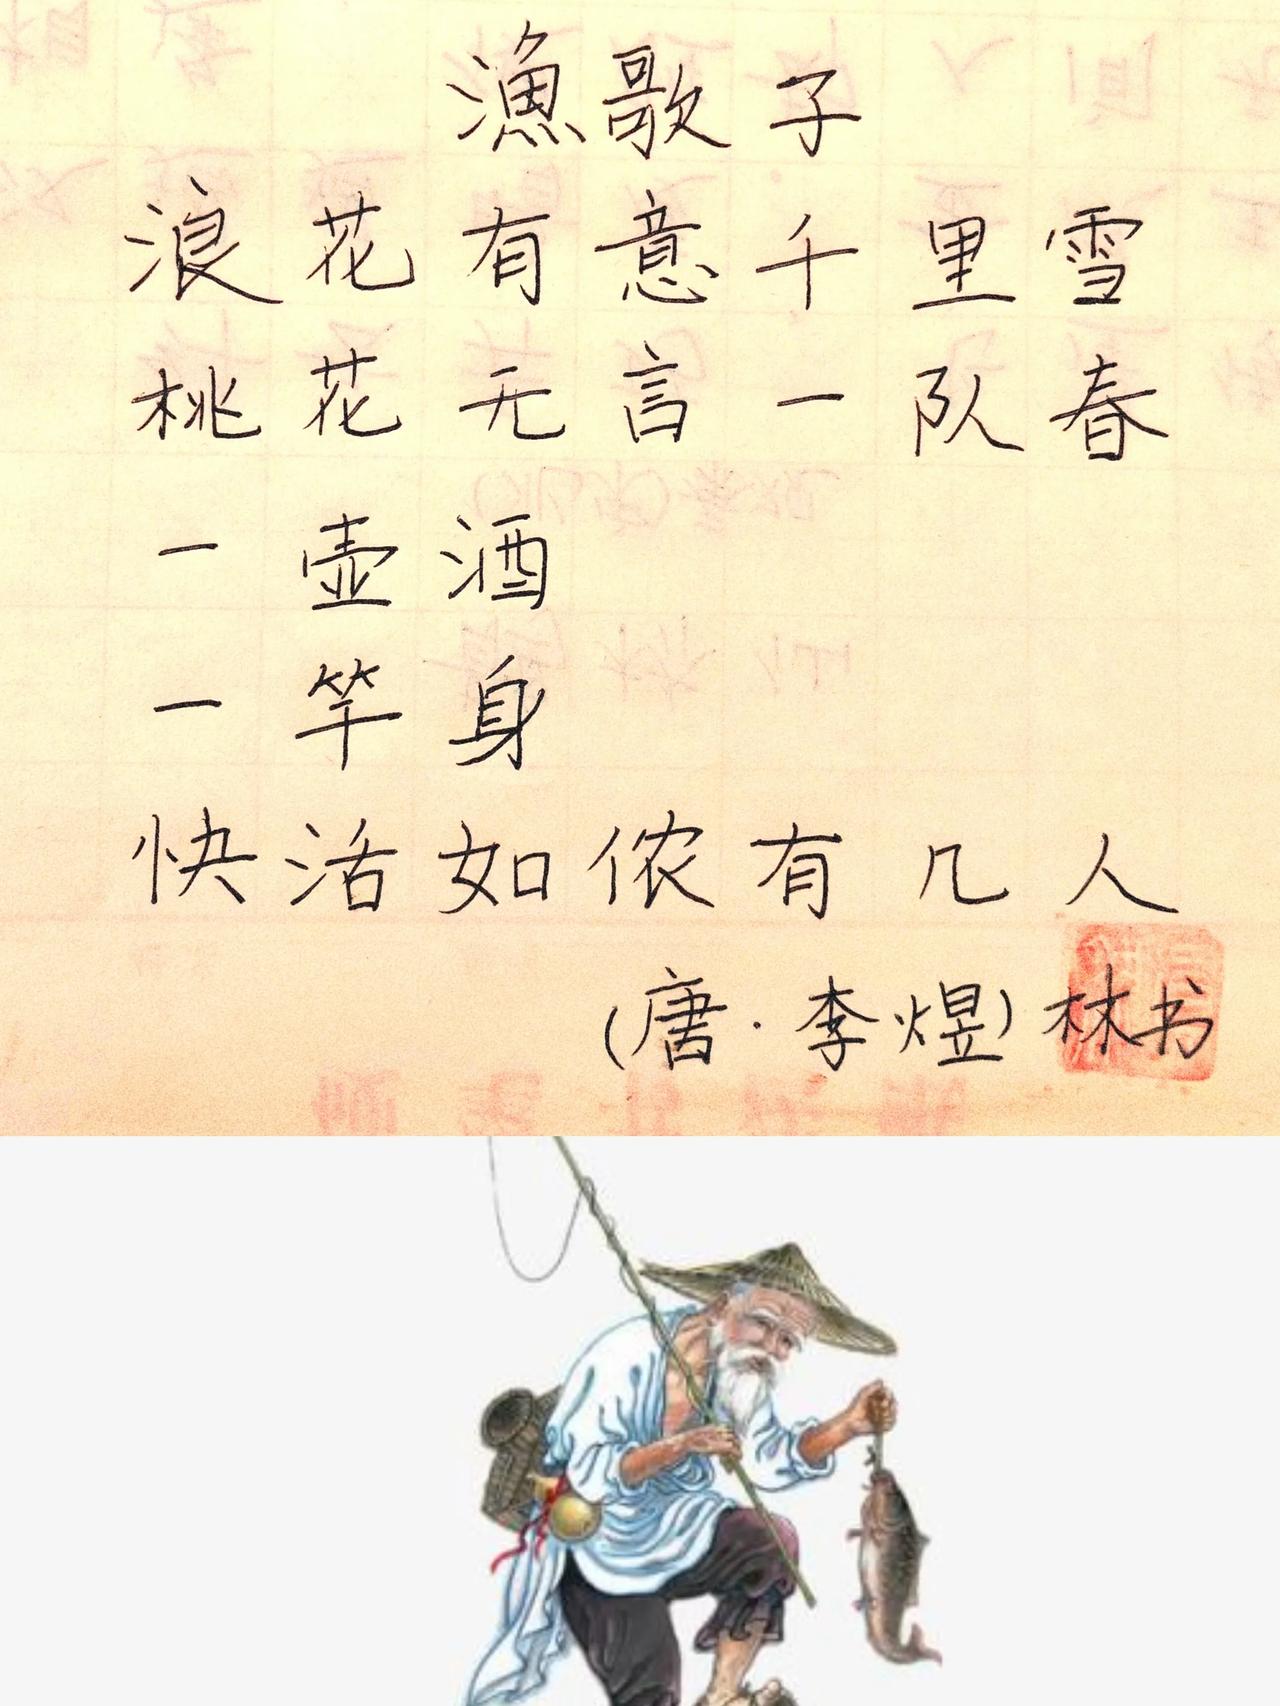 渔歌子
浪花有意千里雪
桃花无言一队春
一壶酒
一竿身
快活如侬有几人
(唐·李煜)林书